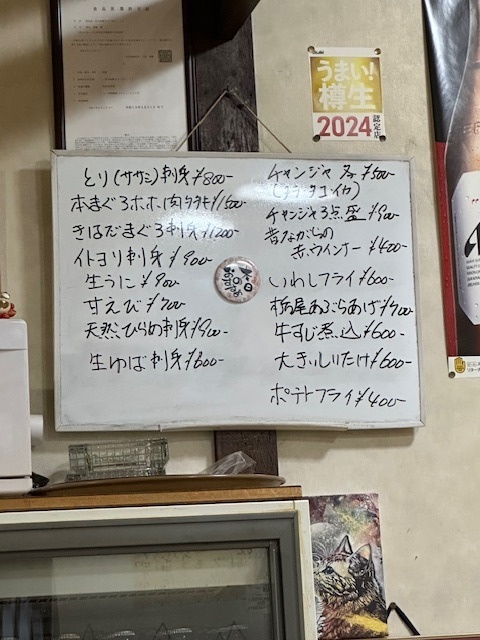 食品営業許可証
Asahi
うまい!
樽生
2024 認定店
とり(ササミ)刺身 ¥800-
本まぐろホホ肉タタキ ¥1600-
きはだまぐろ刺身 ¥1200-
イトヨリ刺身 ¥900-
生うに ¥900-
甘えび ¥700-
天然ひらめ刺身 ¥900-
生ゆば刺身 ¥600-
本日の
おすすめ
チャンジャ 各 ¥500-
(タラ・タコ・イカ)
チャンジャ3点盛 ¥900-
昔ながらの
赤ウインナー ¥400-
いわしフライ ¥600-
栃尾あぶらあげ ¥700-
牛すじ煮込 ¥600-
大きいしいたけ ¥600-
ポテトフライ ¥400-